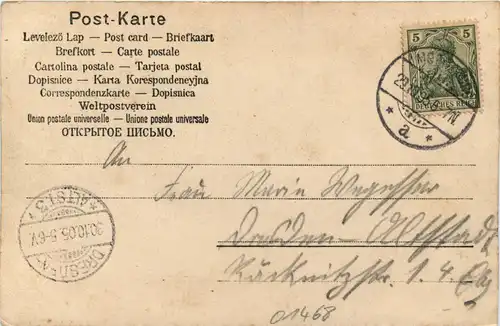 Post-Karte
Levelező Lap — Post card — Briefkaart
Brefkort — Carte postale
Cartolina postale — Tarjeta postal
Dopisnice — Karta Korespondeneyjna
Correspondenzkarte — Dopisnica
Weltpostverein
Union postale universelle — Unione postale universale
ОТКРЫТОЕ ПИСЬМО.
5 5
DEUTSCHES REICH
* a *
An
Frau Marie
Dresden-Altstadt
Räcknitzstr. 1. 4. Etg
*ALTST.3*
30.10.05. 5-6V.
DRESDEN
01468